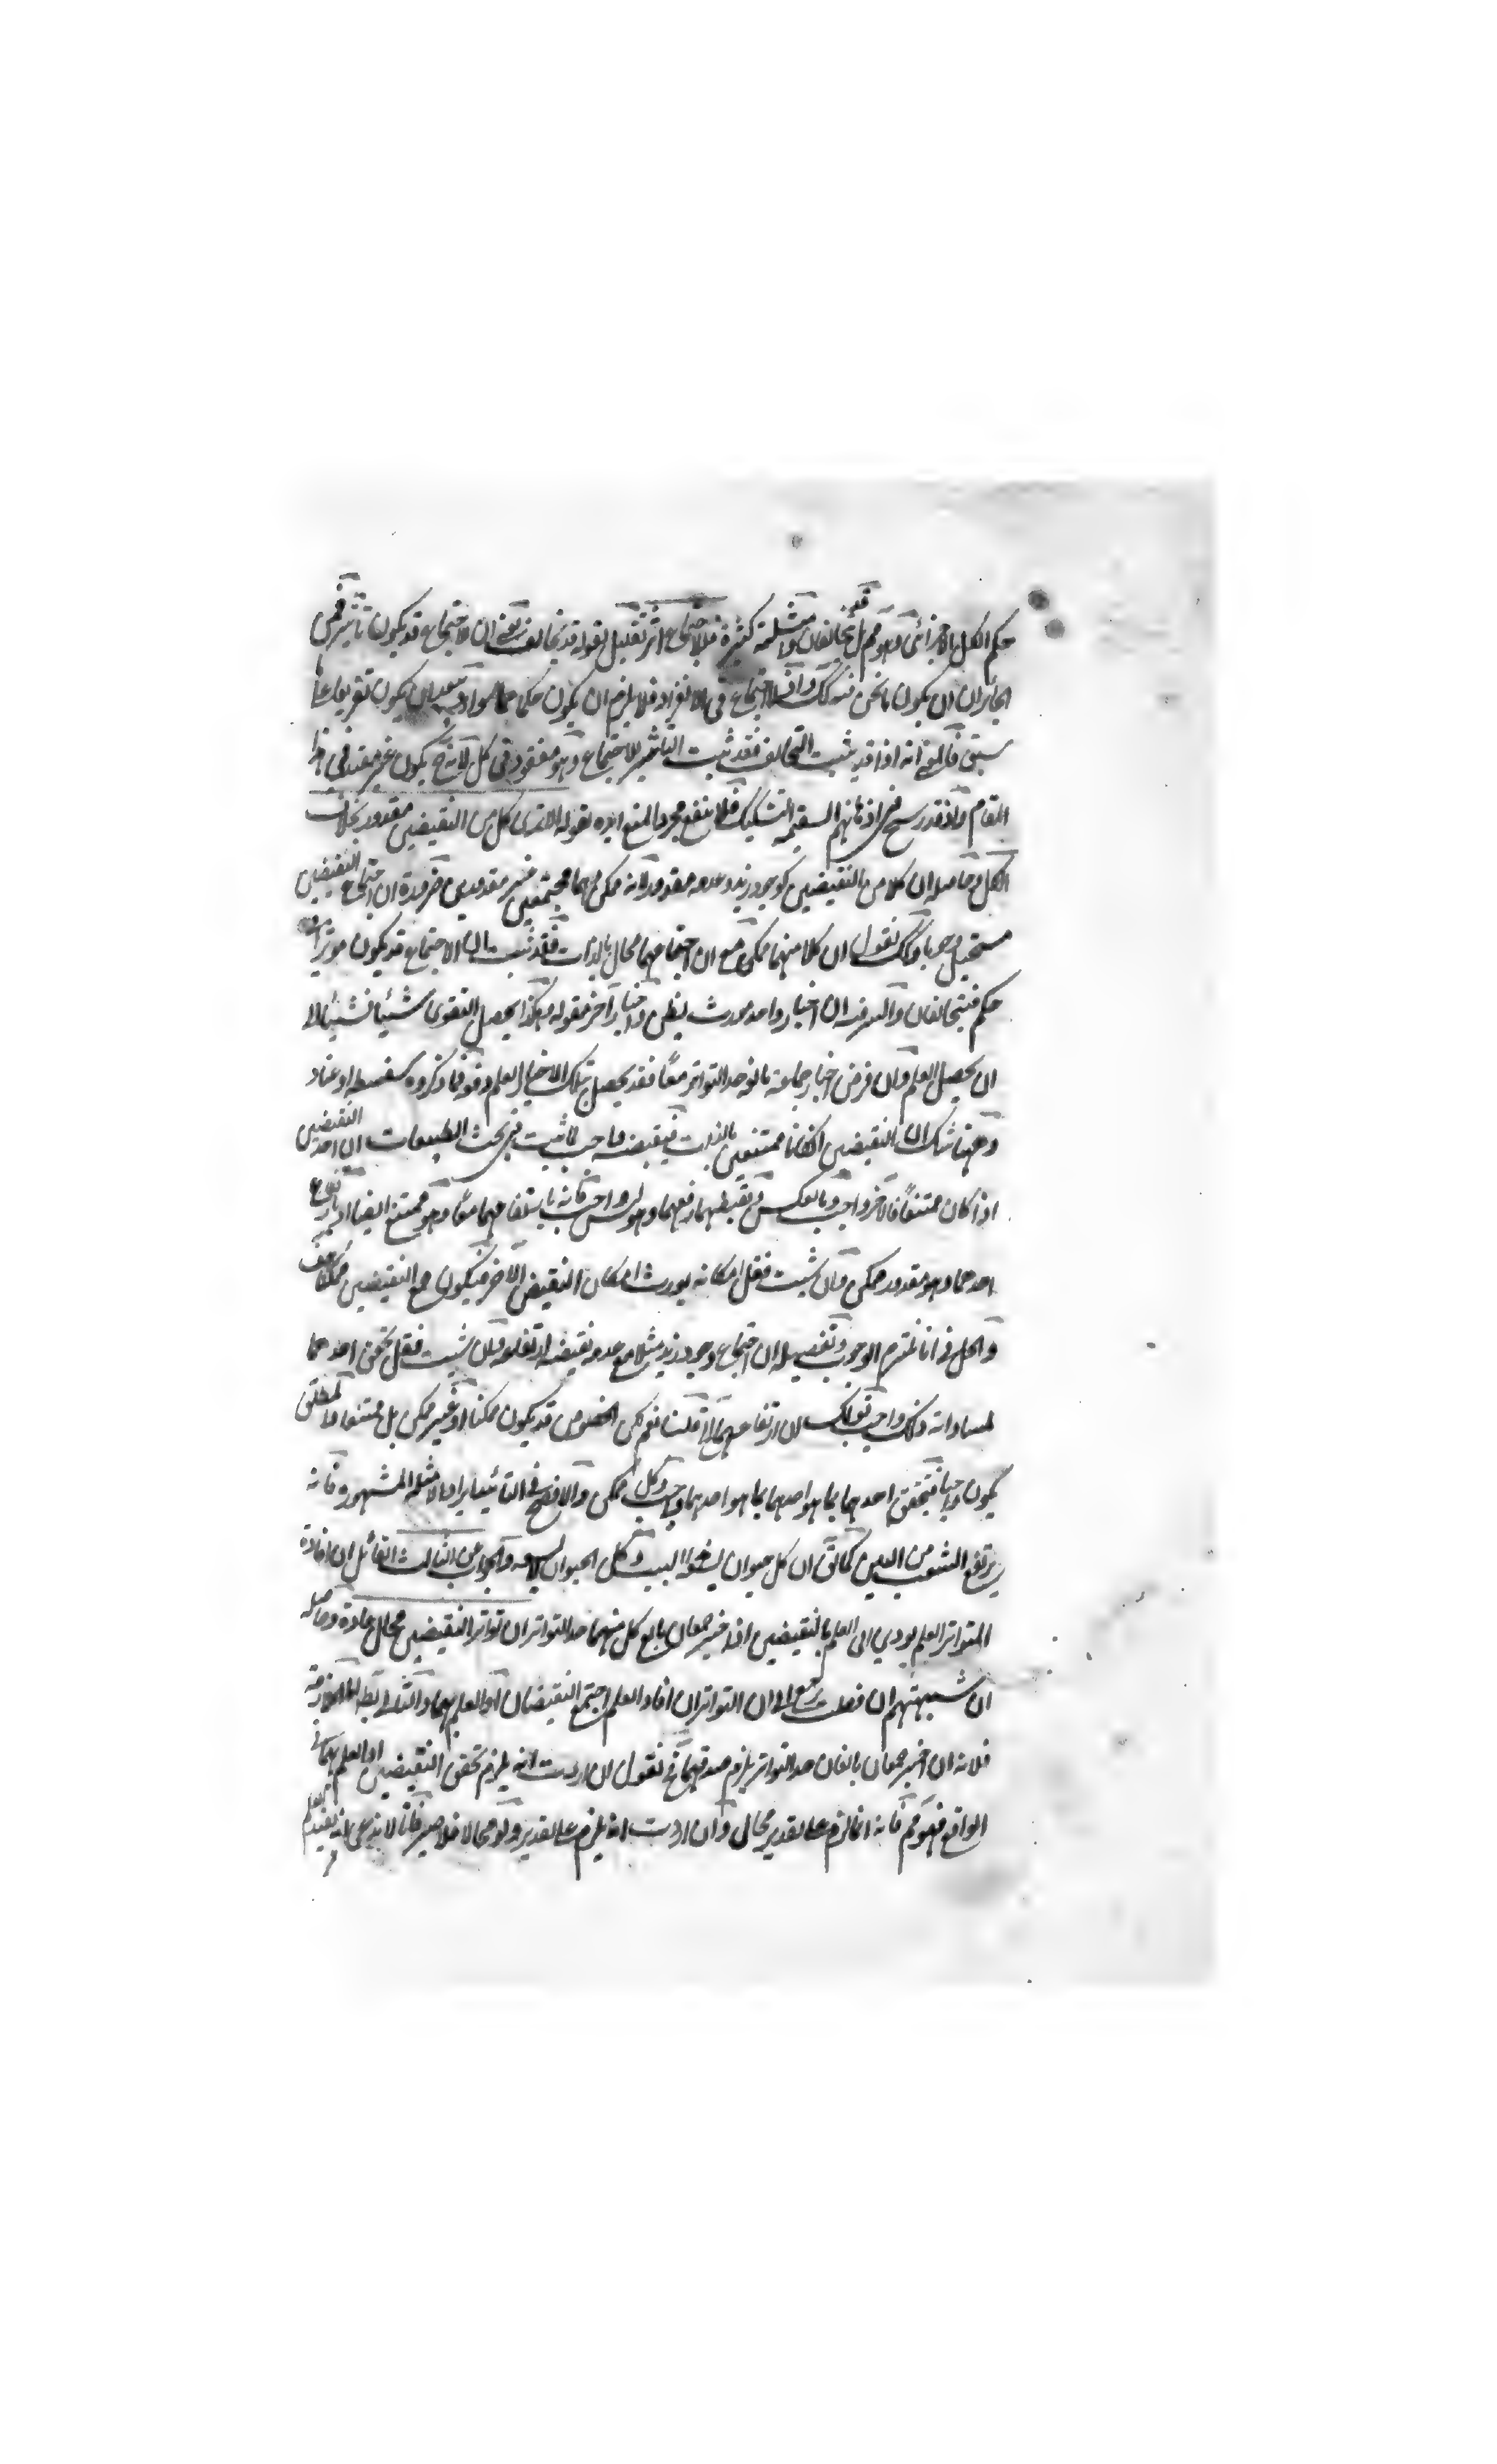 حكم الكل الاجزائى وهو مم بل قد يتخالفان وامثلته كثيرة فللاجتماع اثر تقليل بقوله قد يخالف يعنى ان الاجتماع قد يكون تاثير فمن
الجائز ان يكون ما نحن فيه كك واثر الاجتماع فى الانفراد فلا يلزم ان يكون حكمهما سواء ان يكون تفريعا على ما
سبق فالمعنى انه اذا قد يثبت التخالف فقد ثبت التاثير للاجتماع وهو مفقود فى كل لانه ح يكون غير مفيد فى هذا
المقام واذ قد رسخ فى اذهانهم السقيمة التشكيك فلا ينفع مجرد المنع ايده بقوله الا ترى كل من النقيضين مقدور بخلاف
الكل وحاصله ان كلا من النقيضين كوجود زيد وعدمه مقدور لانه ممكن وهما مجتمعين غير مقدورين ضرورة ان اجتماع النقيضين
مستحيل وجوبا وكك نقول ان كلا منهما ممكن مع ان اجتماعهما محال بالذات فقد ثبت ان الاجتماع قد يكون موثرا فى
حكم فيتخالفان والسر فيه ان اخبار واحد مورث لظن واخبار آخر مقوله وهكذا يحصل التقوى شيئا فشيئا الى
ان يحصل العلم وان فرض اخبار جماعة بالغ حد التواتر معًا فقد يحصل بتلك الاخبار العلم دفعة فما ذكروه سفسطه او عناد
وههنا شك ان النقيضين اذا كانا ممتنعين بالذات فنقيضه واجب لما ثبت فى بحث الطبيعات ان احد النقيضين
اذا كان ممتنعًا فالآخر واجب وبالعكس ونقيضهما رفعهما وهو ليس بواجب فانه بانتفائهما معًا وهو ممتنع ايضا او بارتفاع
احدهما وهو مقدور ممكن وان شئت فقل امكانه يورث امكان النقيض الآخر فيكون جمع النقيضين ممكنا هف
والحل فى انا نلتزم الوجوب وتفصيله ان اجتماع وجود زيد مثلا مع عدمه نقيضه ارتفاعه وان شئت فقل تحقق احدهما
لمساواته ذلك واجب قولك ان ارتفاعهما الخ قلنا نعم لكن الخصوص قد يكون ممكنا او غير ممكن بل ممتنعا والمطلق
يكون واجبا فتحقق احدهما بما هو احدهما بما هو احدهما واجب وكل ممكن والاوضح فى التائيد ايراد الامثلة المشهورة فانه
يرتفع الشغب من البين كما تق ان كل حيوان يسعه البيت وكل الحيوان لا يسعه والجواب عن الثالث القائل ان افادة
المتواتر العلم يودي الى العلم بالنقيضين اذا اخبر جمعان بالغ كل منهما حد التواتر ان تواتر النقيضين محال عادة وحاصله
ان شبهتهم ان فصلت يرجع الى ان التواتر ان افاد العلم اجتمع النقيضان او العلم بهما والتالى بط اما الملازمة
فلانه ان اخبر جمعان بالغان حد التواتر يلزم صدقهما فح نقول ان اردت انه يلزم تحقق النقيضين او العلم بهما فى
الواقع فهو مم فانه انما لزم على تقدير محال وان اردت انه يلزم على تقدير ولو محالا فلا ضير فانا لا ندعى انه يفيد العلم